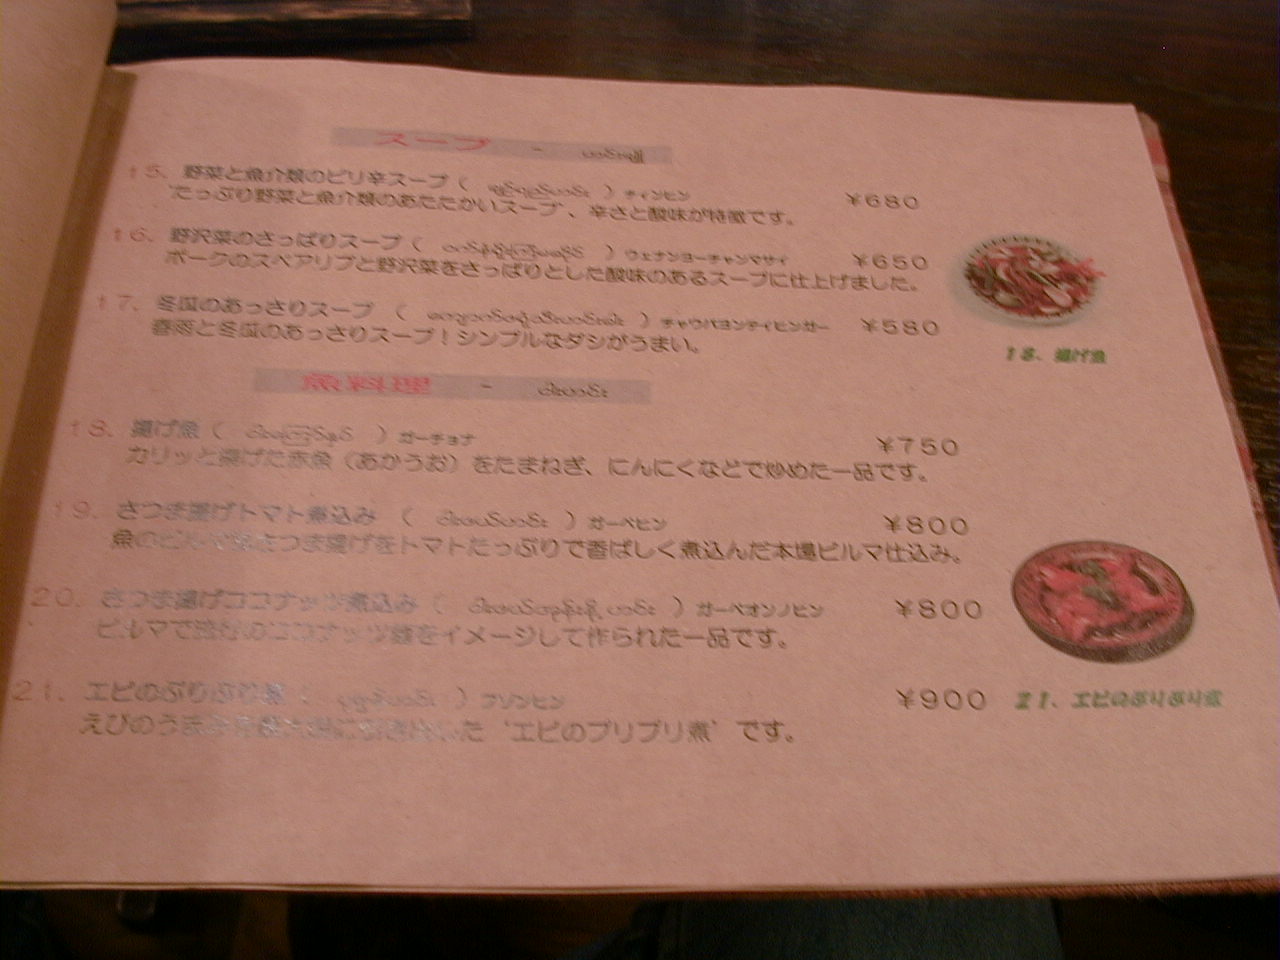 スープ -
15. 野菜と魚介類のピリ辛スープ ( ) チィンヒン ¥680
'たっぷり野菜と魚介類のあたたかいスープ'、辛さと酸味が特徴です。
16. 野沢菜のさっぱりスープ ( ) ウェナンヨーチャンマサイ ¥650
ポークのスペアリブと野沢菜をさっぱりとした酸味のあるスープに仕上げました。
17. 冬瓜のあっさりスープ ( ) チャウパヨンティヒンガー ¥580
春雨と冬瓜のあっさりスープ！シンプルなダシがうまい。
18. 揚げ魚
魚料理 - ငါးဟင်း
18. 揚げ魚 ( ) ガーチョナ ¥750
カリッと揚げた赤魚（あかうお）をたまねぎ、にんにくなどで炒めた一品です。
19. さつま揚げトマト煮込み ( ) ガーペヒン ¥800
魚の さつま揚げをトマトたっぷりで香ばしく煮込んだ本場ビルマ仕込み。
20. さつま揚げココナッツ煮込み ( ) ガーペオンノヒン ¥800
ビルマで のココナッツ麺をイメージして作られた一品です。
21. エビのぷりぷり煮 ( ) フゾンヒン ¥900
えびのうまみを た 'エビのプリプリ煮' です。
21. エビのぷりぷり煮